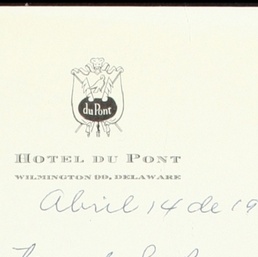 du Pont
HOTEL DU PONT
WILMINGTON 99, DELAWARE
Abril 14 de 19